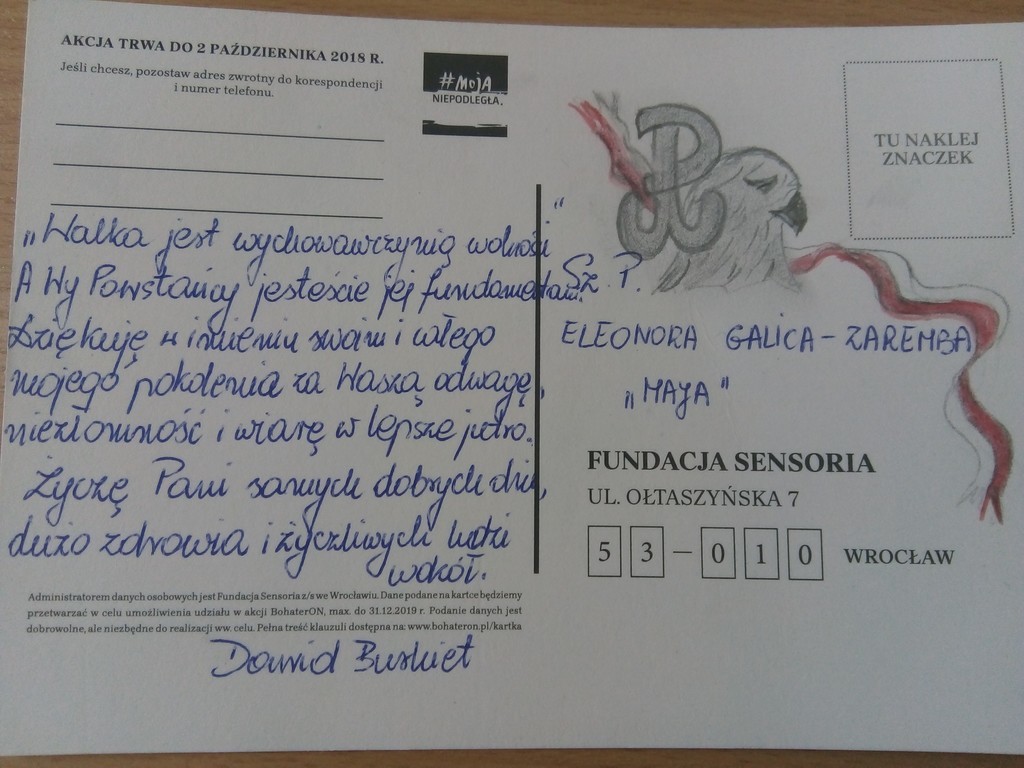 AKCJA TRWA DO 2 PAŹDZIERNIKA 2018 R.
Jeśli chcesz, pozostaw adres zwrotny do korespondencji
i numer telefonu.
#MOJA
NIEPODLEGŁA.
TU NAKLEJ
ZNACZEK
„Walka jest wychowawczynią wolności"
A Wy Powstańcy jesteście jej fundamentami.
Dziękuję w imieniu swoim i całego
mojego pokolenia za Waszą odwagę,
niezłomność i wiarę w lepsze jutro.
Życzę Pani samych dobrych dni,
dużo zdrowia i życzliwych ludzi
wokół.
Sz. P.
ELEONORA GALICA-ZAREMBA
„MAJA"
FUNDACJA SENSORIA
UL. OŁTASZYŃSKA 7
53-010 WROCŁAW
Administratorem danych osobowych jest Fundacja Sensoria z/s we Wrocławiu. Dane podane na kartce będziemy
przetwarzać w celu umożliwienia udziału w akcji BohaterON, max. do 31.12.2019 r. Podanie danych jest
dobrowolne, ale niezbędne do realizacji ww. celu. Pełna treść klauzuli dostępna na: www.bohateron.pl/kartka
Dawid Buskiet